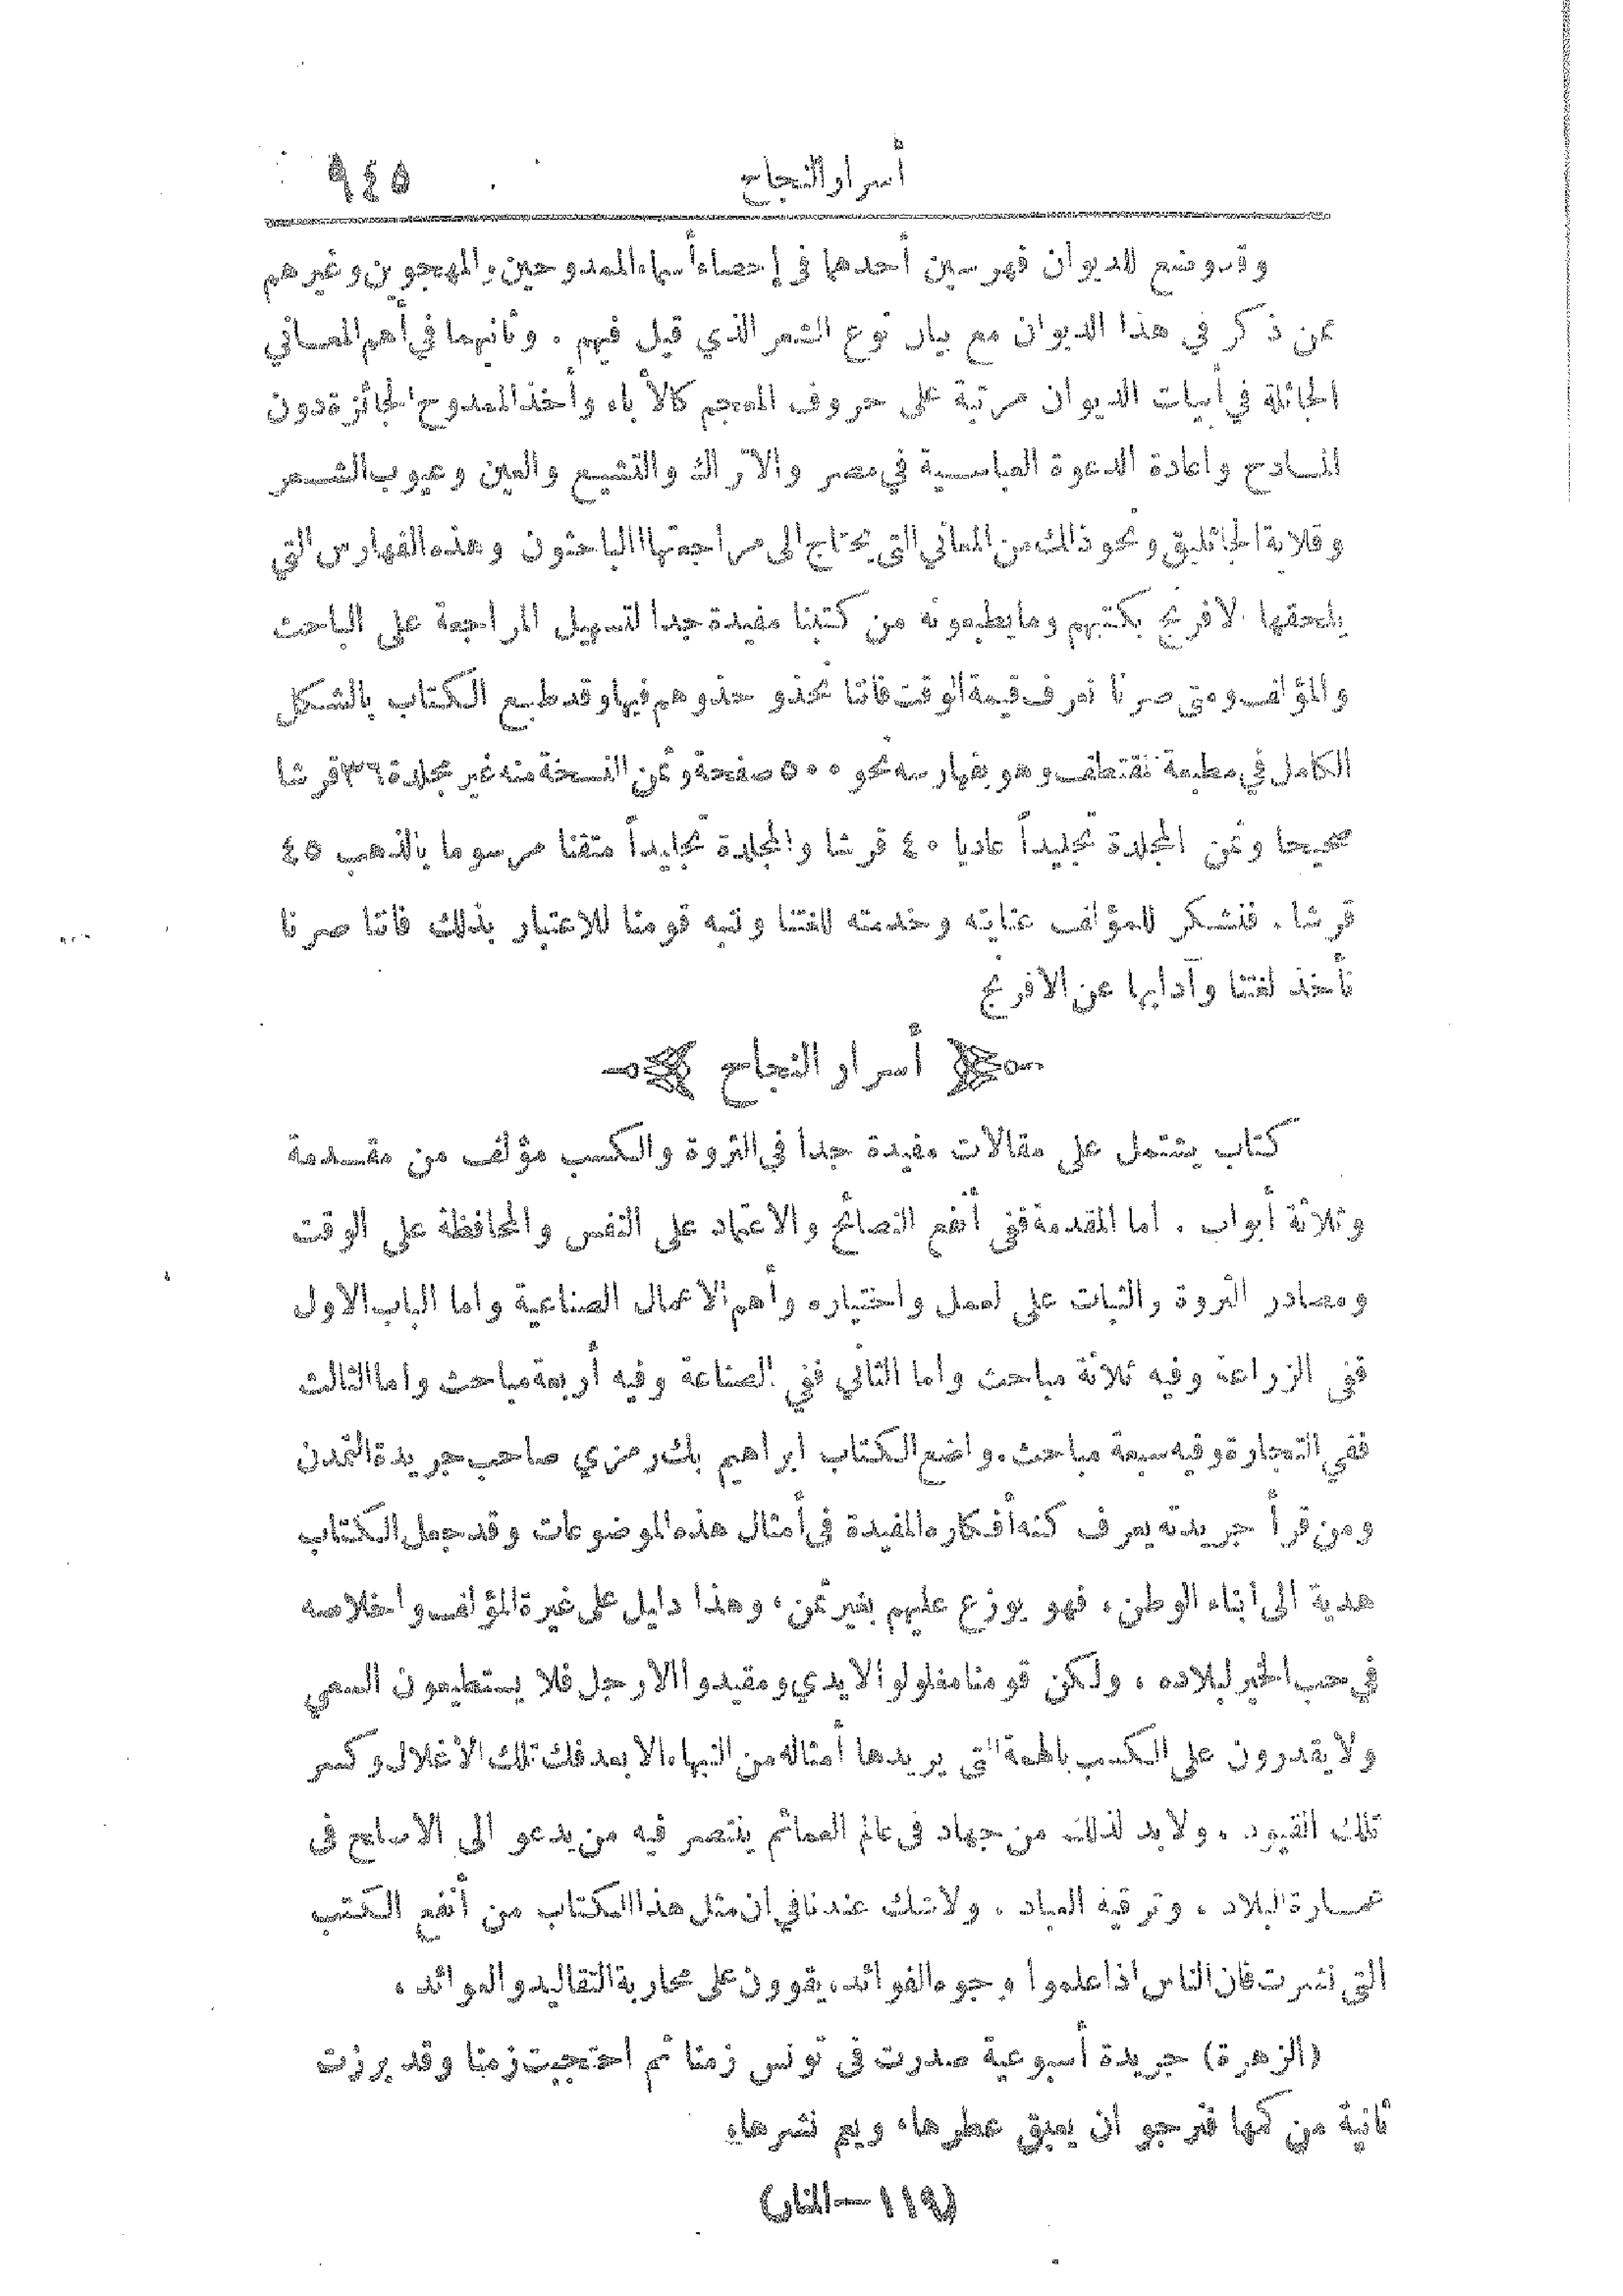 أسرار النجاح
٩٤٥
وقد وضع للديوان فهرسين أحدهما في إحصاء أسماء الممدوحين والمهجوين وغيرهم
ممن ذكر في هذا الديوان مع بيان نوع الشعر الذي قيل فيهم . وثانيهما في أهم المعاني
الجائلة في أبيات الديوان مرتبة على حروف المعجم كالأباء وأخذ الممدوح الجائزة دون
المادح واعادة الدعوة العباسية في مصر والاتراك والتشيع والعين وعيوب الشعر
وقلابة الجاثليق ونحو ذلك من المعاني التي يحتاج الى مراجعتها الباحثون وهذه الفهارس التي
يلحقها الافرنج بكتبهم وما يطبعونه من كتبنا مفيدة جدا لتسهيل المراجعة على الباحث
والمؤلف ومتى صرنا نعرف قيمة الوقت فاننا نحذو حذوهم فيها وقد طبع الكتاب بالشكل
الكامل في مطبعة المقتطف وهو بفهارسه نحو ٥٠٠ صفحة وثمن النسخة منه غير مجلدة ٣٦ قرشا
صحيحا وثمن المجلدة تجليداً عاديا ٤٠ قرشا والمجلدة تجليداً متقنا مرسوما بالذهب ٤٥
قرشا . فنشكر للمؤلف عنايته وخدمته للغتنا وننبه قومنا للاعتبار بذلك فاننا صرنا
نأخذ لغتنا وآدابها عن الافرنج
أسرار النجاح
كتاب يشتمل على مقالات مفيدة جدا في الثروة والكسب مؤلف من مقدمة
وثلاثة أبواب . اما المقدمة ففي أنفع النصائح والاعتماد على النفس والمحافظة على الوقت
ومصادر الثروة والثبات على لعمل واختياره وأهم الاعمال الصناعية واما الباب الاول
ففي الزراعة وفيه ثلاثة مباحث واما الثاني ففي الصناعة وفيه أربعة مباحث واما الثالث
ففي التجارة وفيه سبعة مباحث . واضع الكتاب ابراهيم بك رمزي صاحب جريدة التمدن
ومن قرأ جريدته يعرف كنه أفكاره المفيدة في أمثال هذه الموضوعات وقد جعل الكتاب
هدية الى ابناء الوطن ، فهو يوزع عليهم بغير ثمن ، وهذا دليل على غيرة المؤلف واخلاصه
في حب الخير لبلاده ، ولكن قومنا مغلولو الايدي ومقيدوا الارجل فلا يستطيعون السعي
ولا يقدرون على الكسب بالهمة التي يريدها أمثاله من النبهاء الا بعد فك تلك الاغلال وكسر
تلك القيود ، ولا بد لذلك من جهاد في عالم العمائم ينتصر فيه من يدعو الى الاصلاح في
عمارة البلاد ، وترقية العباد ، ولا شك عندنا في ان مثل هذا الكتاب من أنفع الكتب
التي نشرت فان الناس اذا علموا وجوه الفوائد ، يقوون على محاربة التقاليد والعوائد ،
(الزهرة) جريدة أسبوعية صدرت في تونس زمنا ثم احتجبت زمنا وقد برزت
ثانية من كمها فنرجو ان يعبق عطرها، ويعم نشرها،
(١١٩ — المنار)